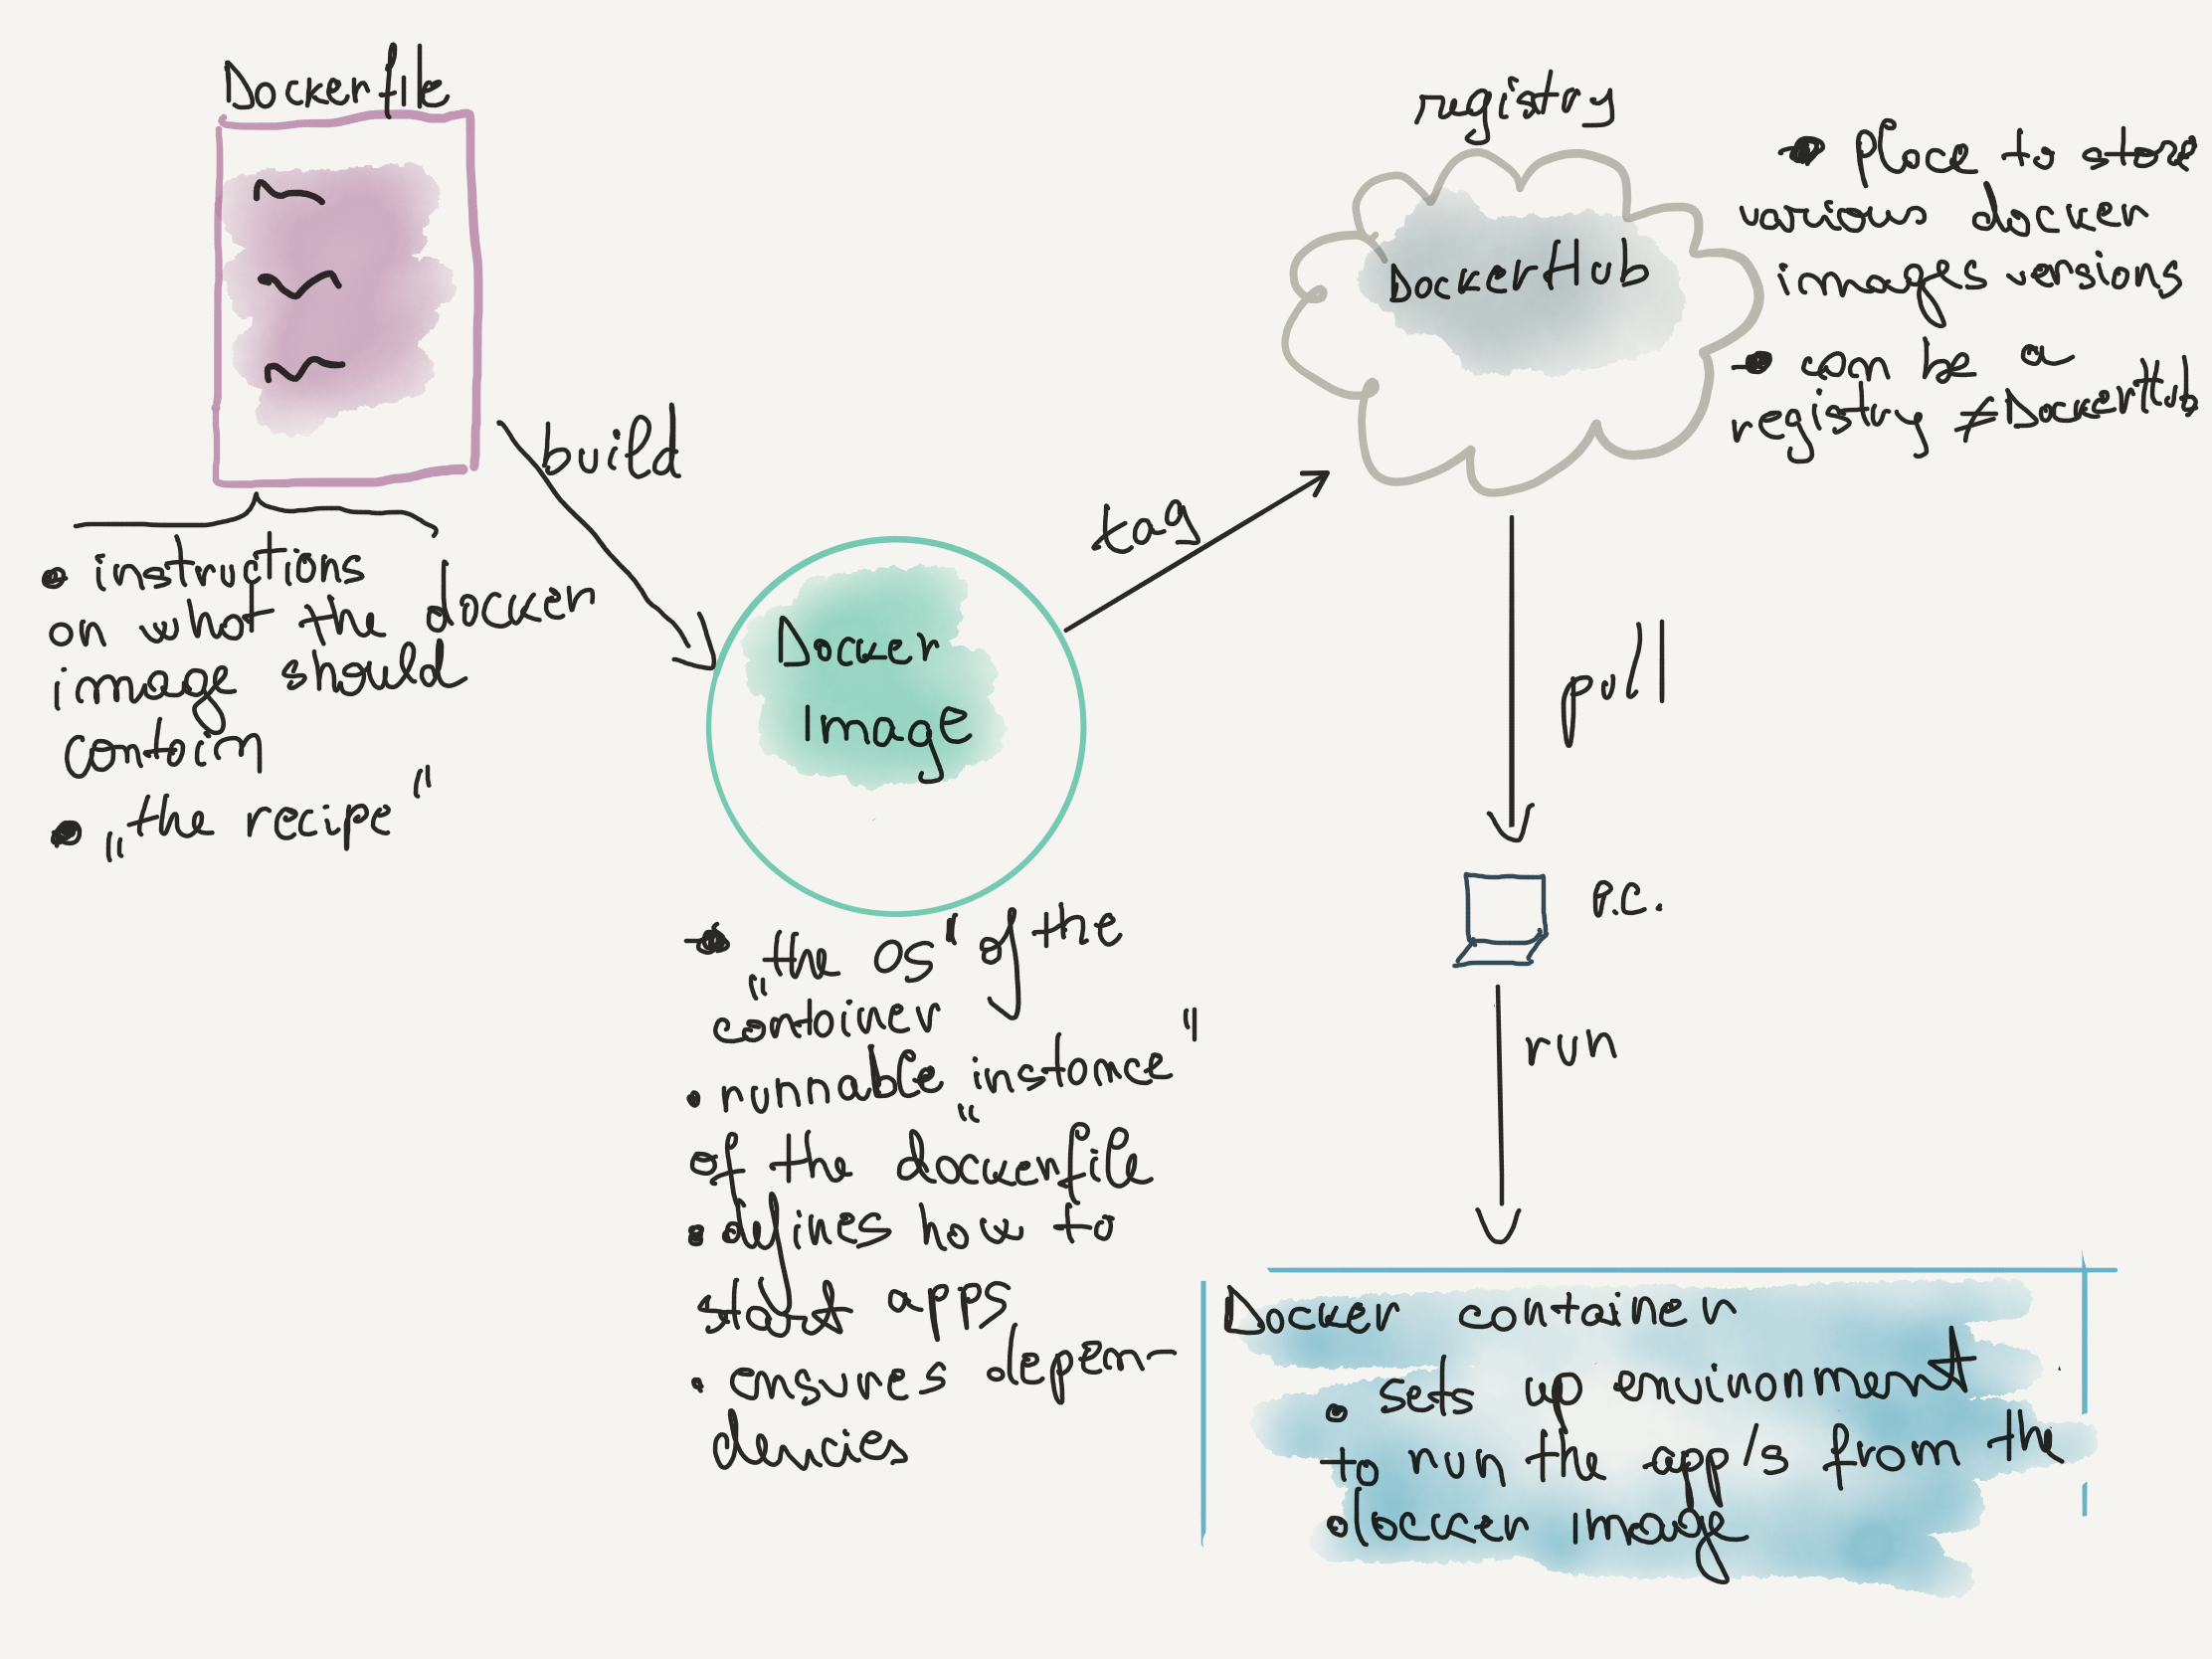 Dockerfile
build
• instructions
on what the docker
image should
contain
• „the recipe"
Docker
Image
• „the OS" of the
container
• runnable „instance"
of the dockerfile
• defines how to
start apps
• ensures depen-
dencies
tag
registry
DockerHub
• place to store
various docker
images versions
• can be a
registry ≠ DockerHub
pull
P.C.
run
Docker container
• sets up environment
to run the app/s from the
docker image